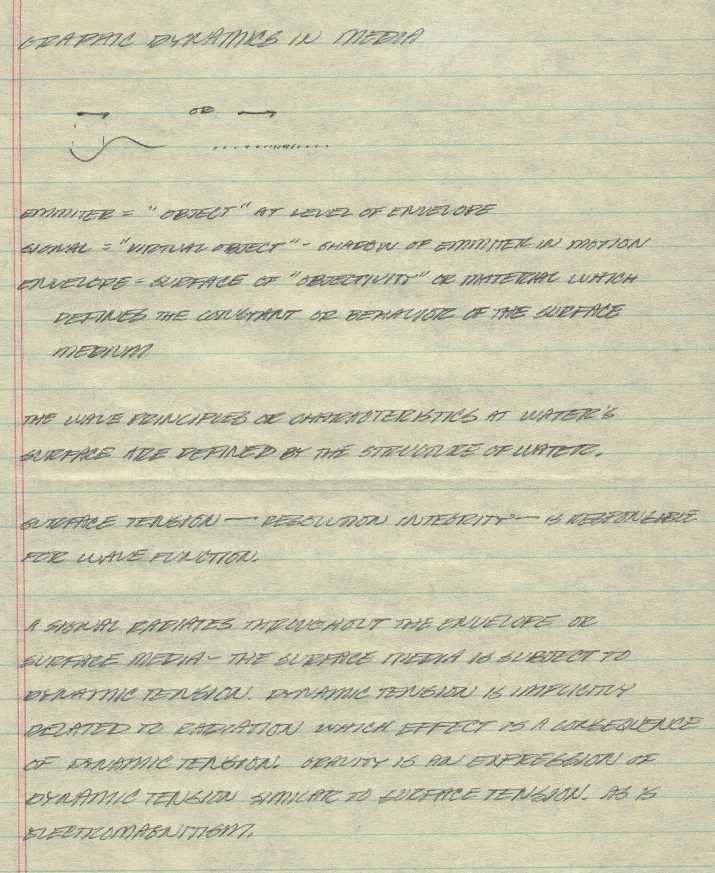 GRAPHIC DYNAMICS IN MEDIA
OR
EMMITER = "OBJECT" AT LEVEL OF ENVELOPE
SIGNAL = "VIRTUAL OBJECT" - SHADOW OF EMMITER IN MOTION
ENVELOPE = SURFACE OF "OBJECTIVITY" OR MATERIAL WHICH
DEFINES THE CONSTANT OR BEHAVIOR OF THE SURFACE
MEDIUM
THE WAVE PRINCIPLES OR CHARACTERISTICS AT WATER'S
SURFACE ARE DEFINED BY THE STRUCTURE OF WATER.
SURFACE TENSION — RESOLUTION INTEGRITY — IS RESPONSIBLE
FOR WAVE FUNCTION.
A SIGNAL RADIATES THROUGHOUT THE ENVELOPE OR
SURFACE MEDIA - THE SURFACE MEDIA IS SUBJECT TO
DYNAMIC TENSION. DYNAMIC TENSION IS IMPLICITLY
RELATED TO RADIATION WHICH EFFECT IS A CONSEQUENCE
OF DYNAMIC TENSION. GRAVITY IS AN EXPRESSION OF
DYNAMIC TENSION SIMILAR TO SURFACE TENSION. AS IS
ELECTROMAGNITISM.